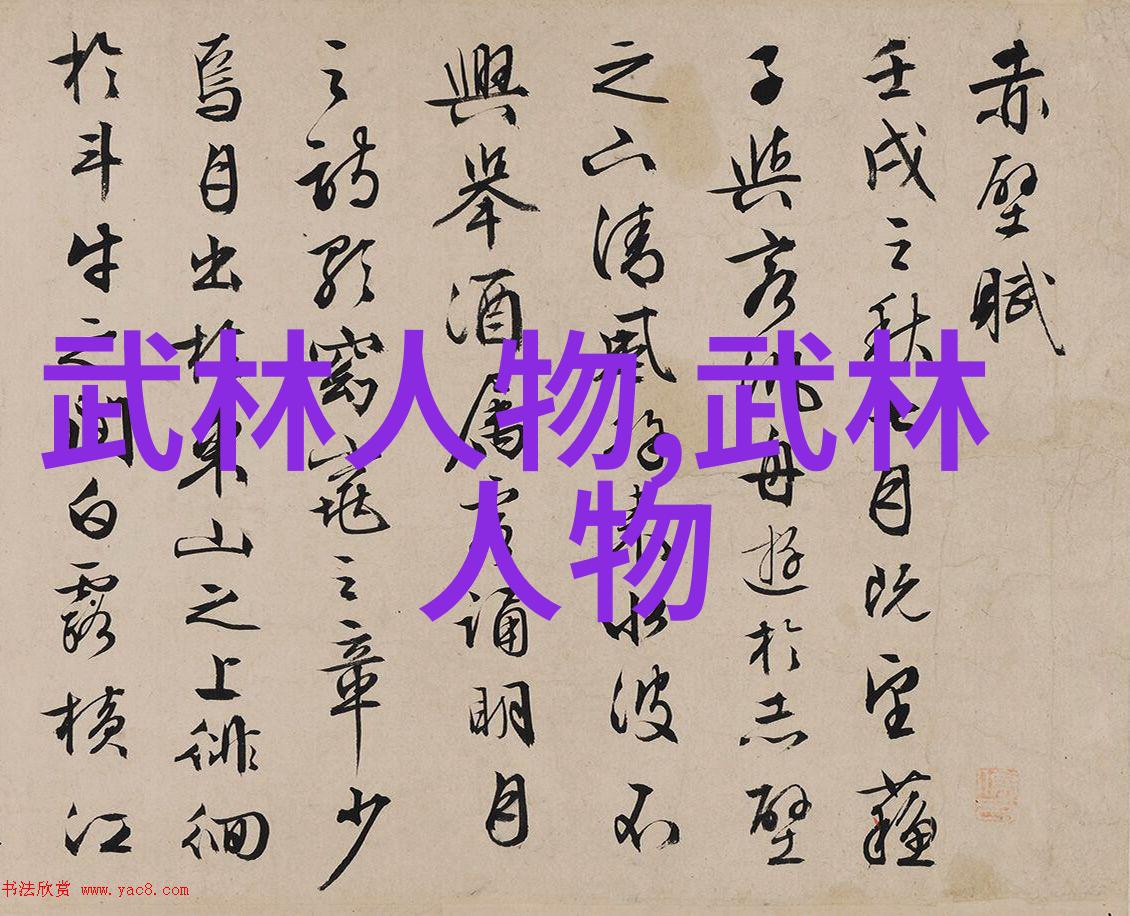 赤壁賦
壬戌之秋七月既望蘓
子與客泛舟遊於赤壁
之下清風徐來水波不
興舉酒屬客誦明月
之詩歌窈窕之章少
焉月出於東山之上徘徊
於斗牛之間白露橫江
武林人物,武林
人物
书法欣赏 www.yac8.com